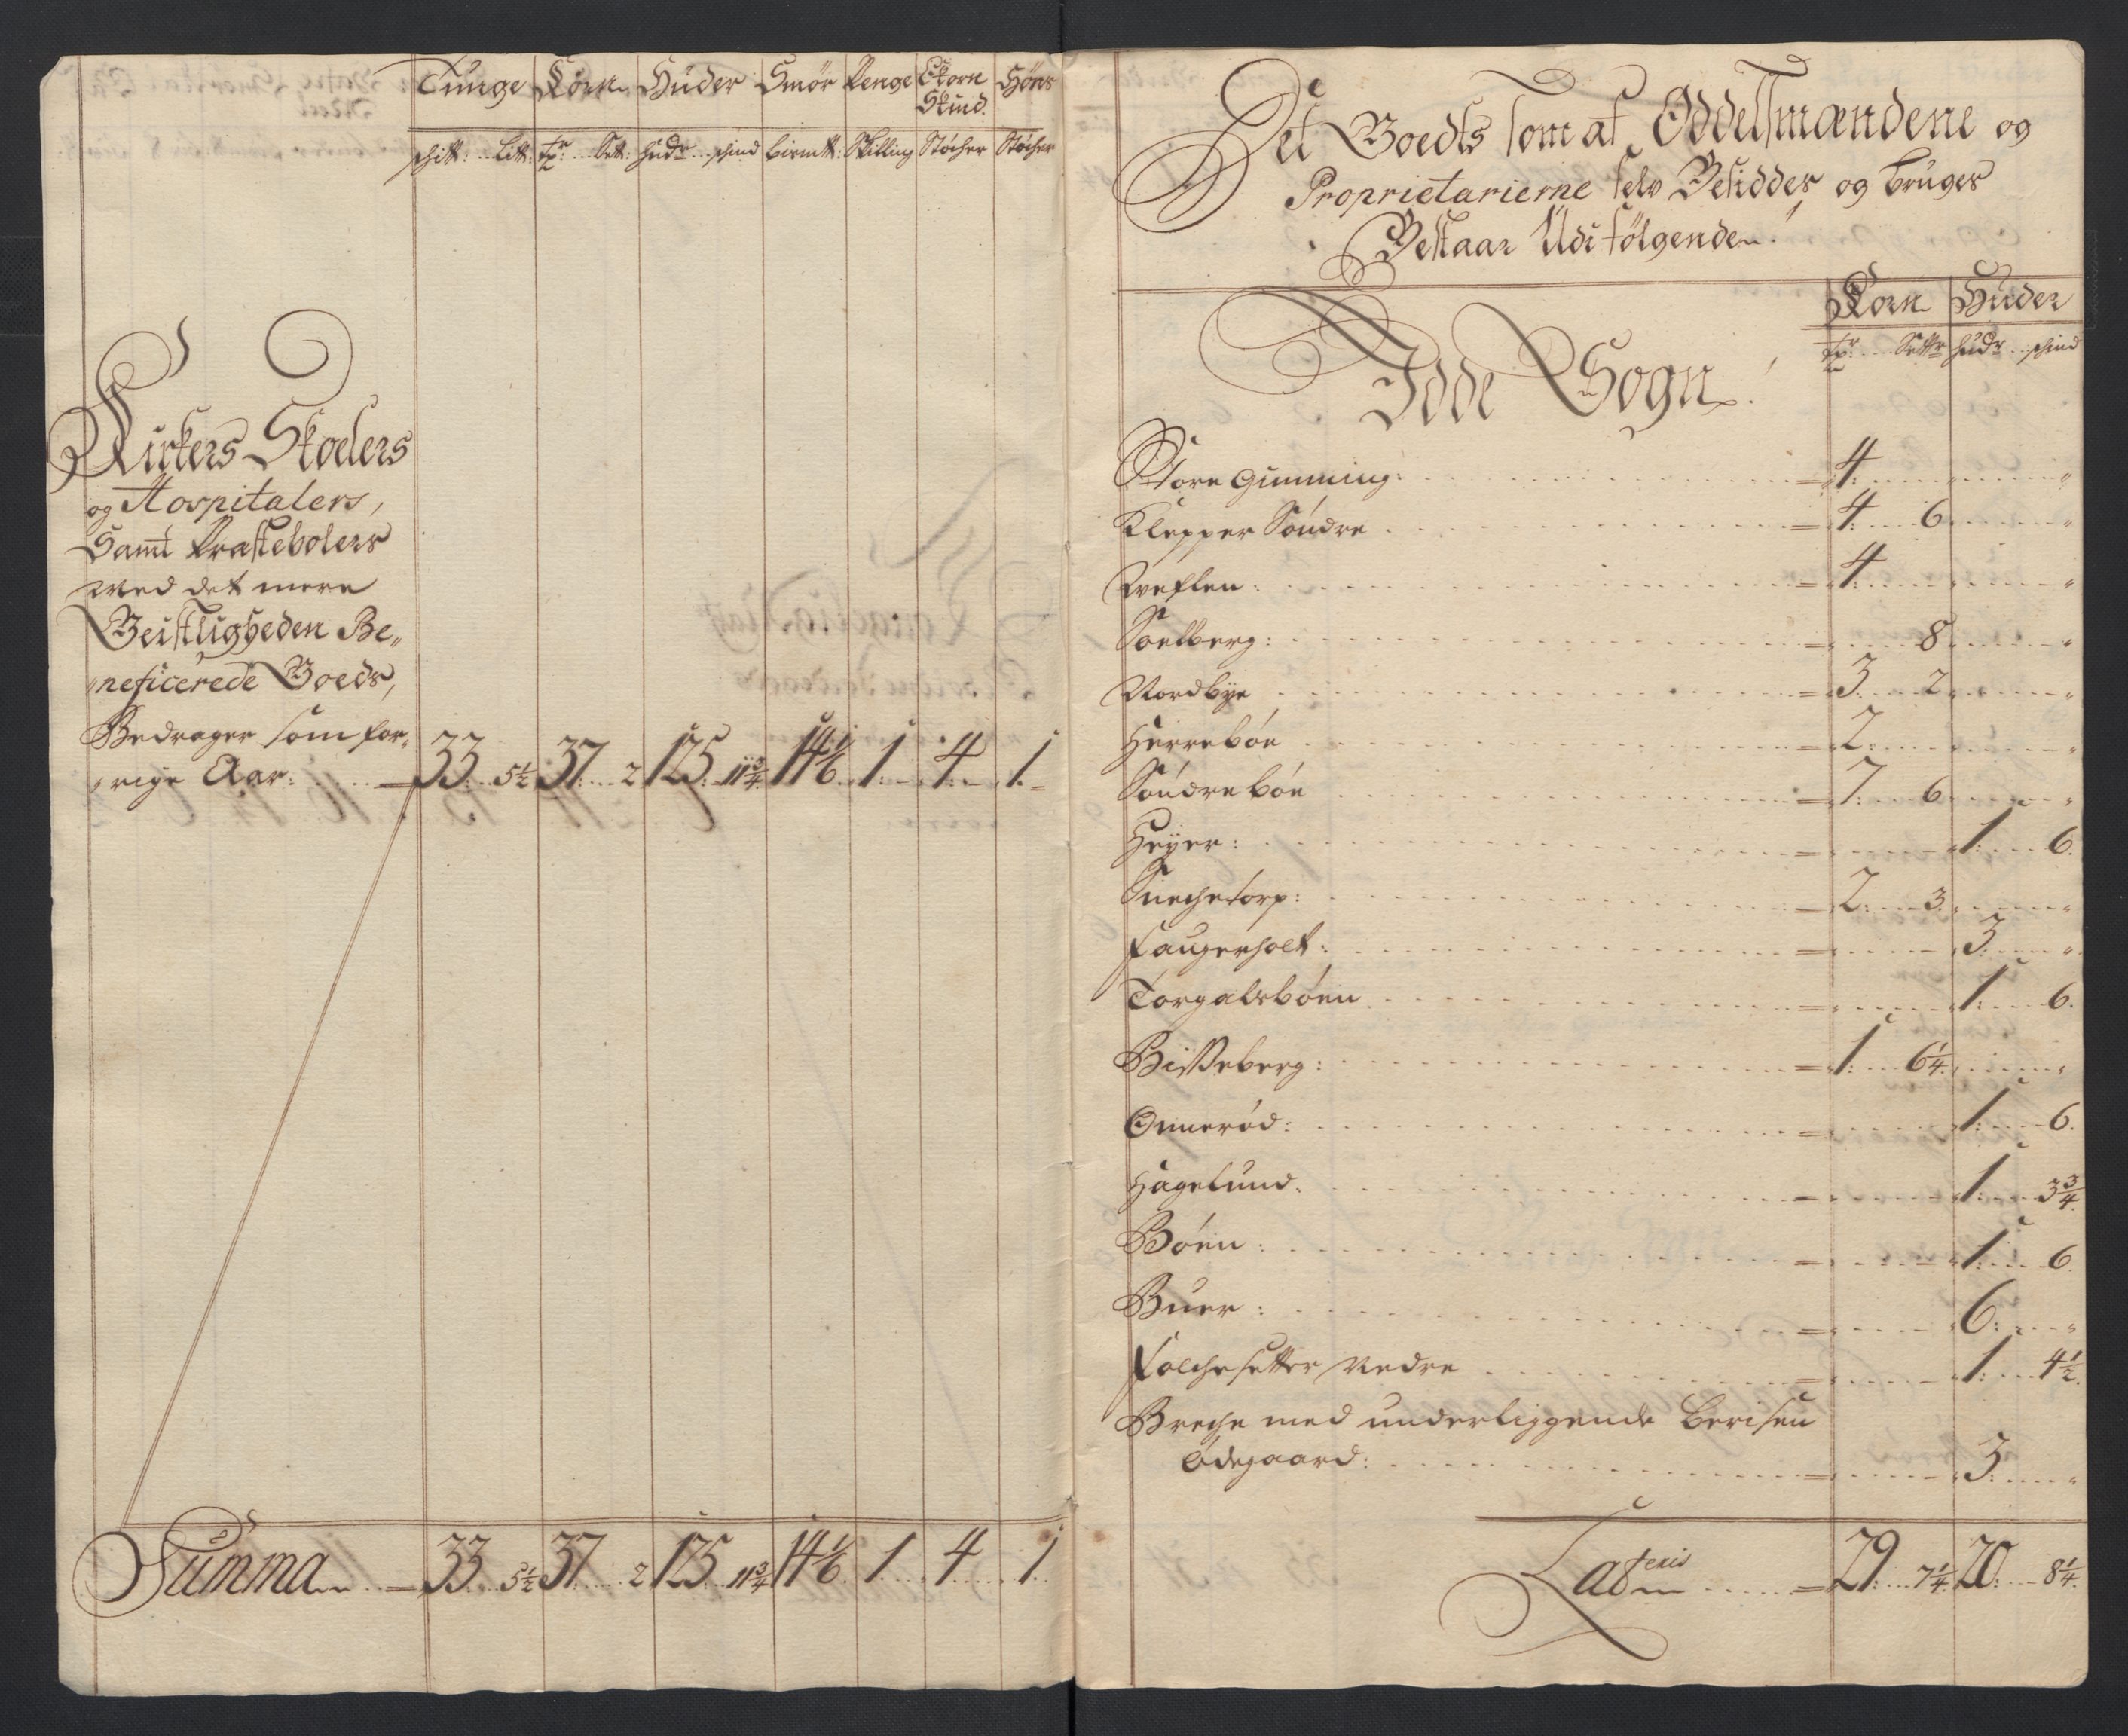 Tunge Korn Huder Smör Penge Ekorn Skind Höns
schitt: Litt: tr: Sett: hudr schind birmtt: Skilling Støcher Støcher
Kirkers Skoelers
og Hospitalers,
Samt Præstebolers
med det mere
Geistligheden Be„
„neficerede Goeds,
Bedrager som for„
„rige Aar: 33 5½ 37 2 125 11¾ 14⅙ 1 4 1
Summa 33 5½ 37 2 125 11¾ 14⅙ 1 4 1
Det Goedts som af Oddelsmændene og
Proprietarierne selv Besiddes og bruges
Bestaar Udi følgende
Korn Huder
tr: Settr hudr schind
Idde Sogn
Store Gimming: 4
Klepper Søndre 4 6
Weflen: 4
Soelberg: 8
Nordbye 3 2
Herrebøe 2
Søndre bøe 7 6
Heyer: 1 6
Snechetorp: 2 3
Faugerholt: 3
Torgalsbøen 1 6
Bisseberg: 1 6¼
Onnerød: 1 6
Hagelund 1 3¾
Bøen: 1 6
Buer: 6
Folchesetter Nedre 1 4½
Breche med underliggende Berisen
Ødegaard: 3
Lateris 29 7¼ 20 8¼